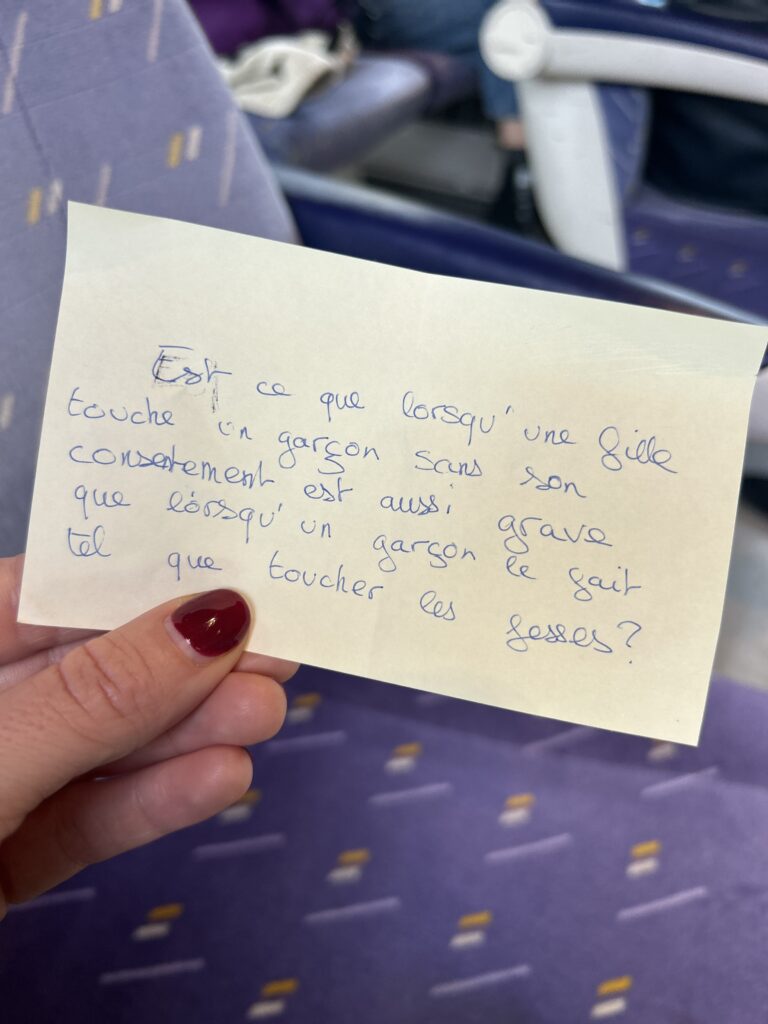 Est ce que lorsqu'une fille
touche un garçon sans son
consentement est aussi grave
que lorsqu'un garçon le fait
tel que toucher les fesses?